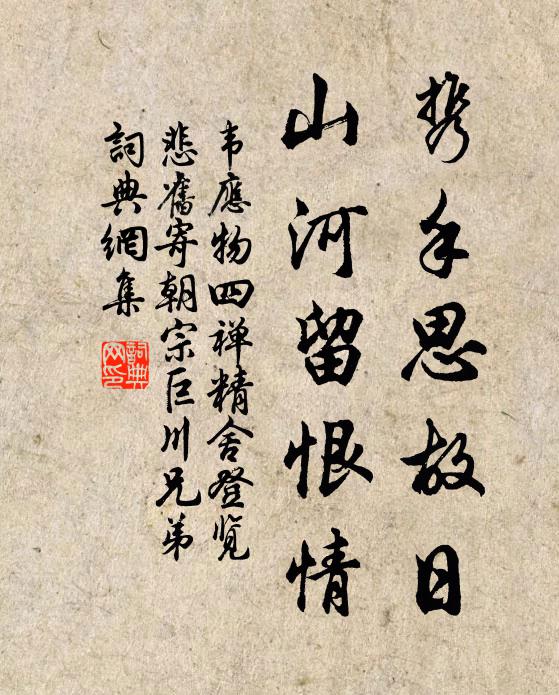 携手思故日
山河留恨情
韦應物四禅精舍登览
悲舊寄朝宗巨川兄弟
詞典網集
詞典
网印